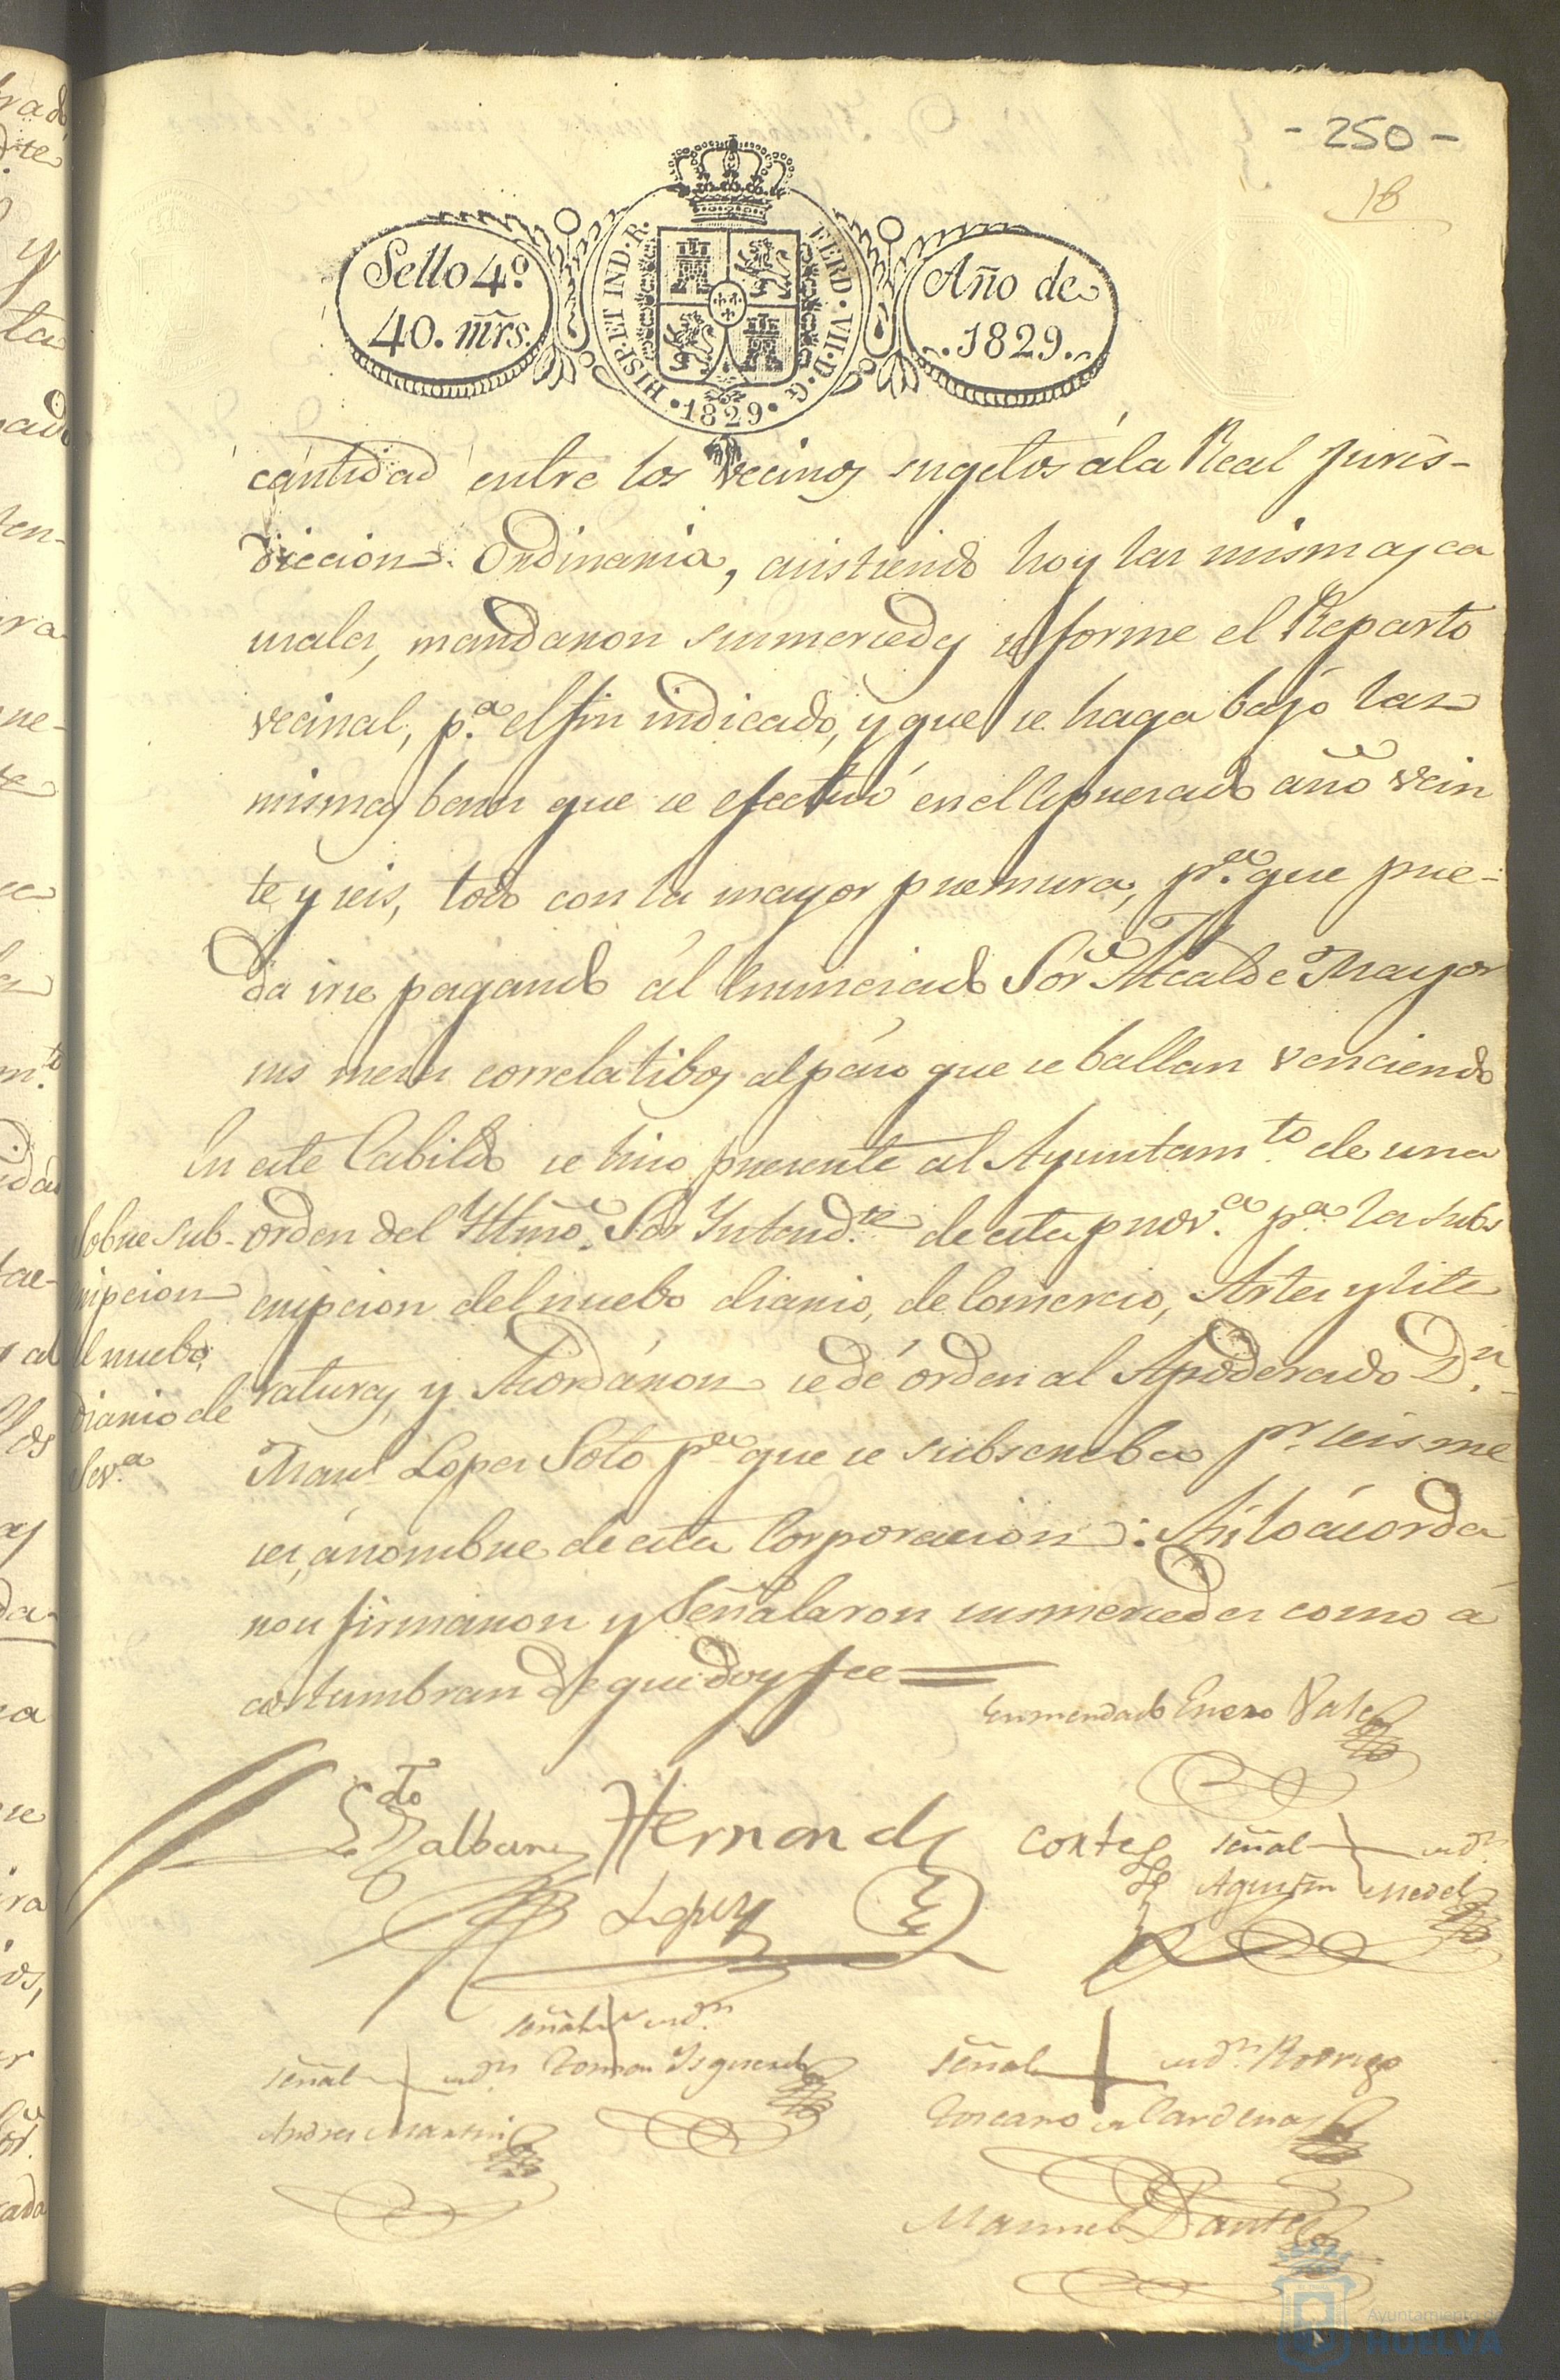 - 250 -
18
Sello 4º
40. mrs.
HISP. ET IND. R.
FERD. VII. D. G.
1829
Año de
1829.
cantidad entre los vecinos sugetos á la Real Juris-
diccion Ordinaria, existiendo hoy las mismas ca
usales, mandaron sus mercedes se forme el Reparto
vecinal, p.ª el fin indicado, y que se haga bajo las
mismas bases que se efectuó en el espresado año vein
te y seis, todo con la mayor premura, p.ª que pue-
da irse pagando al enunciado Sor. Alcalde Mayor
sus meses correlatibos al paso que se hallan venciendo
En este Cabildo se hizo presente al Ayuntam.to de una
orden del Yltmo. Sor Yntend.te de esta prov.ª p.ª la subs
cripcion del nuebo diario, de Comercio, Artes y lite
ratura, y Acordáron se dé órden al Apoderado D.n
Man.l Lopez Soto p.ª que se subscriba p.r seis me
ses, á nombre de esta Corporacion: Asi lo acorda
ron firmaron y Señalaron sus mercedes como a
costumbran de que doy fee =
Sobre sub-
cripcion
al nuebo
diario de
Sev.ª
Enmendado Enero Vale
L.do Zalbanes Hernandz Cortes señal + de D.n
Agustin Medel
Lopez
señal + de D.n
señal + de D.n Tomas Ysquierdo
Andres Martin
señal + de D.n Rodrigo
Toscano de Cardenas
Manuel Santos
Ayuntamiento de
HUELVA